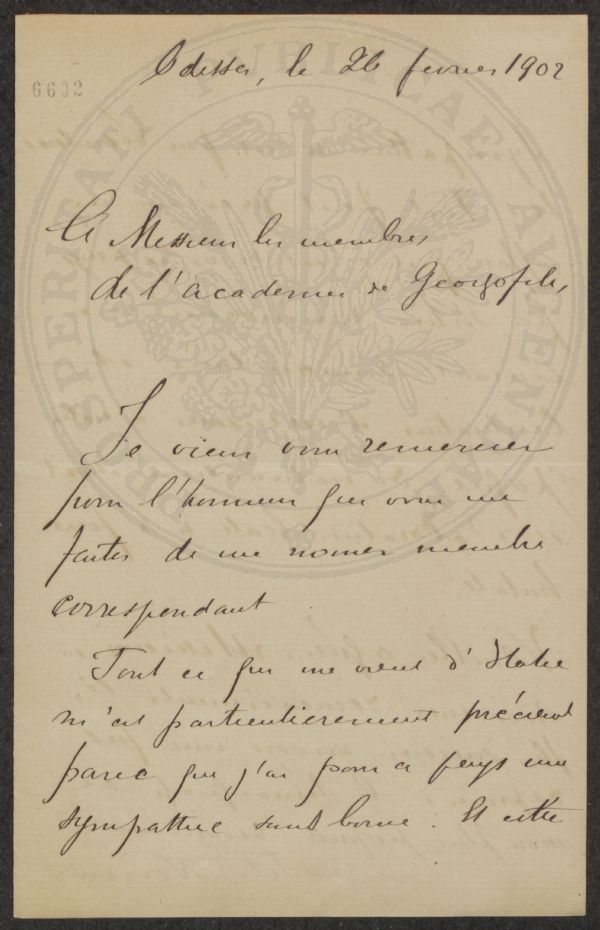 6602
Odessa, le 26 fevrier 1902
A Messieurs les membres
de l'academie de Georgofili,
Je viens vous remercier
pour l'honneur que vous me
faites de me nomer membre
correspondant
Tout ce qui me vient d'Italie
m'est particulierement précieux
parce que j'ai pour ce pays une
sympathie sans borne. Et cette
PROSPERITATI PUBLICAE AUGENDAE